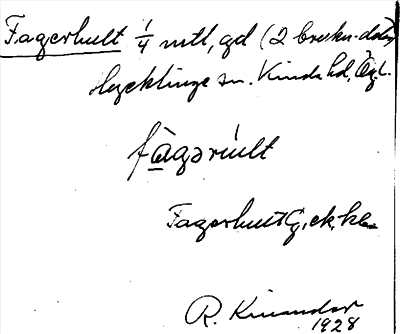 Fagerhult 1/4 mtl, gd (2 bruknr.delar)
Hycklinge sn. Kinda hd, Ögl.
fàgərúlt
Fagerhult G, ek, kb.
R. Kinander
1928